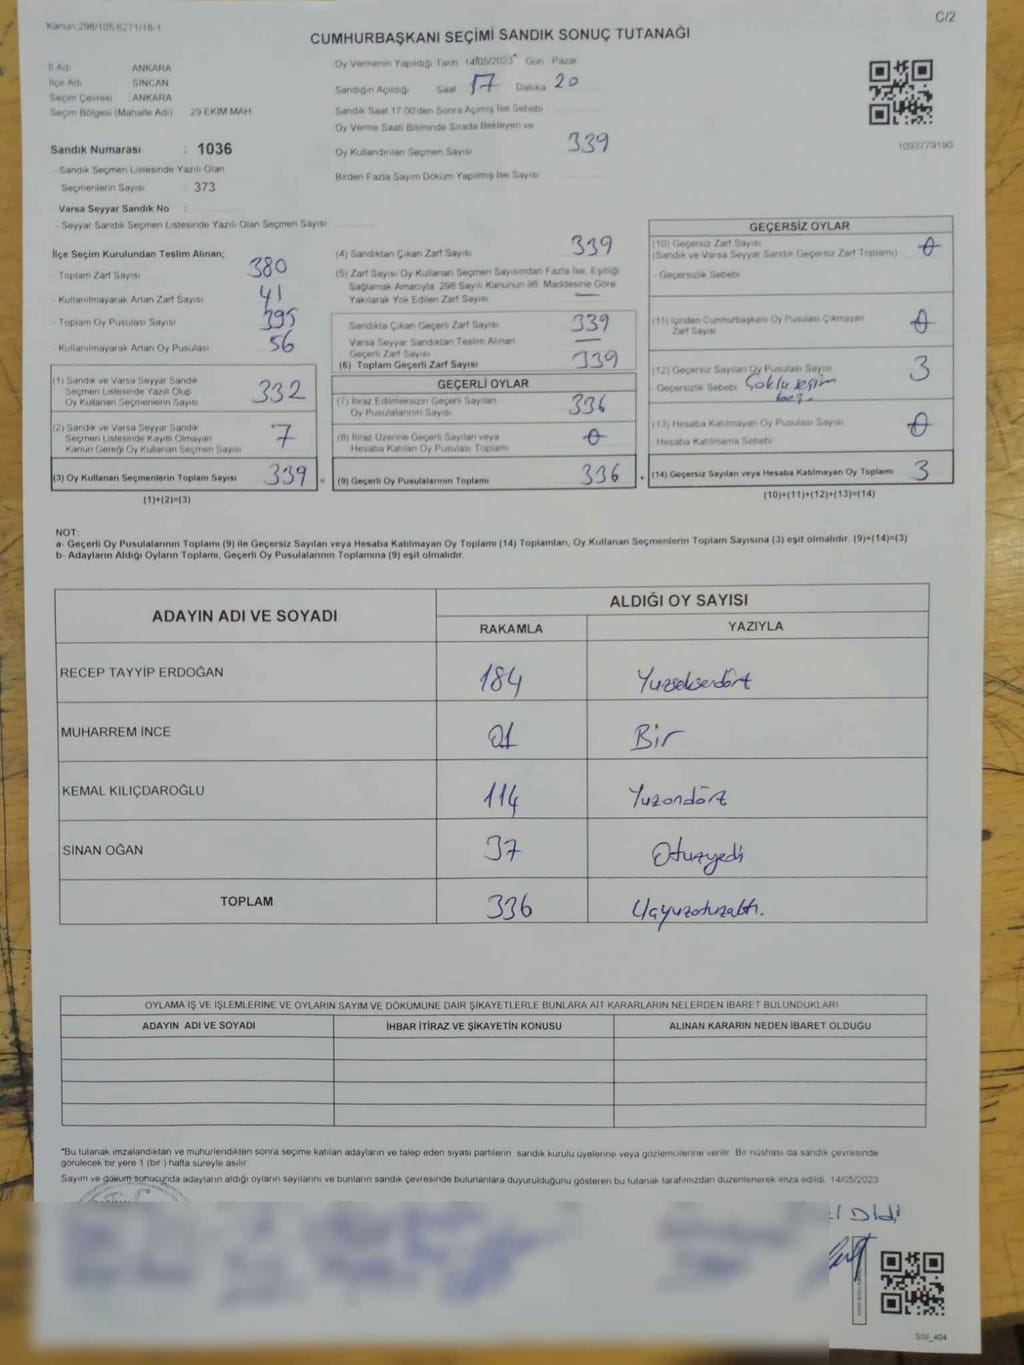 Kanun 298/105 6271/18-1
C/2
CUMHURBAŞKANI SEÇİMİ SANDIK SONUÇ TUTANAĞI
İl Adı ANKARA
İlçe Adı SİNCAN
Seçim Çevresi : ANKARA
Seçim Bölgesi (Mahalle Adı) 29 EKİM MAH
Sandık Numarası : 1036
- Sandık Seçmen Listesinde Yazılı Olan
Seçmenlerin Sayısı : 373
Varsa Seyyar Sandık No :
- Seyyar Sandık Seçmen Listesinde Yazılı Olan Seçmen Sayısı
Oy Vermenin Yapıldığı Tarih 14/05/2023 Gün Pazar
Sandığın Açıldığı Saat 17 Dakika 20
Sandık Saat 17:00'den Sonra Açımış İse Sebebi
Oy Verme Saati Bitiminde Sırada Bekleyen ve
Oy Kullandırılan Seçmen Sayısı 339
Birden Fazla Sayım Döküm Yapılmış İse Sayısı
1093779190
İlçe Seçim Kurulundan Teslim Alınan;
- Toplam Zarf Sayısı 380
- Kullanılmayarak Artan Zarf Sayısı 41
- Toplam Oy Pusulası Sayısı 395
- Kullanılmayarak Artan Oy Pusulası 56
(1) Sandık ve Varsa Seyyar Sandık
Seçmen Listesinde Yazılı Olup
Oy Kullanan Seçmenlerin Sayısı 332
(2) Sandık ve Varsa Seyyar Sandık
Seçmen Listesinde Kayıtlı Olmayan
Kanun Gereği Oy Kullanan Seçmen Sayısı 7
(3) Oy Kullanan Seçmenlerin Toplam Sayısı 339 =
(1)+(2)=(3)
(4) Sandıktan Çıkan Zarf Sayısı 339
(5) Zarf Sayısı Oy Kullanan Seçmen Sayısından Fazla İse, Eşitliği
Sağlamak Amacıyla, 298 Sayılı Kanunun 98. Maddesine Göre
Yakılarak Yok Edilen Zarf Sayısı —
Sandıkta Çıkan Geçerli Zarf Sayısı 339
Varsa Seyyar Sandıktan Teslim Alınan
Geçerli Zarf Sayısı —
(6) Toplam Geçerli Zarf Sayısı 339
GEÇERLİ OYLAR
(7) İtiraz Edilmeksizin Geçerli Sayılan
Oy Pusulalarının Sayısı 336
(8) İtiraz Üzerine Geçerli Sayılan veya
Hesaba Katılan Oy Pusulası Toplamı 0
(9) Geçerli Oy Pusulalarının Toplamı 336 +
GEÇERSİZ OYLAR
(10) Geçersiz Zarf Sayısı
(Sandık ve Varsa Seyyar Sandık Geçersiz Zarf Toplamı) 0
- Geçersizlik Sebebi
(11) İçinden Cumhurbaşkanı Oy Pusulası Çıkmayan
Zarf Sayısı 0
(12) Geçersiz Sayılan Oy Pusulası Sayısı 3
- Geçersizlik Sebebi
(13) Hesaba Katılmayan Oy Pusulası Sayısı 0
- Hesaba Katılmama Sebebi
(14) Geçersiz Sayılan veya Hesaba Katılmayan Oy Toplamı 3
(10)+(11)+(12)+(13)=(14)
NOT:
a- Geçerli Oy Pusulalarının Toplamı (9) ile Geçersiz Sayılan veya Hesaba Katılmayan Oy Toplamı (14) Toplamları, Oy Kullanan Seçmenlerin Toplam Sayısına (3) eşit olmalıdır. (9)+(14)=(3)
b- Adayların Aldığı Oyların Toplamı, Geçerli Oy Pusulalarının Toplamına (9) eşit olmalıdır.
ADAYIN ADI VE SOYADI
ALDIĞI OY SAYISI
RAKAMLA YAZIYLA
RECEP TAYYİP ERDOĞAN 184 Yüzseksendört
MUHARREM İNCE 01 Bir
KEMAL KILIÇDAROĞLU 114 Yüzondört
SİNAN OĞAN 37 Otuzyedi
TOPLAM 336 Üçyüzotuzaltı.
OYLAMA İŞ VE İŞLEMLERİNE VE OYLARIN SAYIM VE DÖKÜMÜNE DAİR ŞİKAYETLERLE BUNLARA AİT KARARLARIN NELERDEN İBARET BULUNDUKLARI
ADAYIN ADI VE SOYADI İHBAR İTİRAZ VE ŞİKAYETİN KONUSU ALINAN KARARIN NEDEN İBARET OLDUĞU
*Bu tutanak imzalandıktan ve mühürlendikten sonra seçime katılan adayların ve talep eden siyasi partilerin sandık kurulu üyelerine veya gözlemcilerine verilir. Bir nüshası da sandık çevresinde
görülecek bir yere 1 (bir) hafta süreyle asılır.
Sayım ve döküm sonucunda adayların aldığı oyların sayılarını ve bunların sandık çevresinde bulunanlara duyurulduğunu gösteren bu tutanak tarafımızdan düzenlenerek imza edildi. 14/05/2023
SGI_404